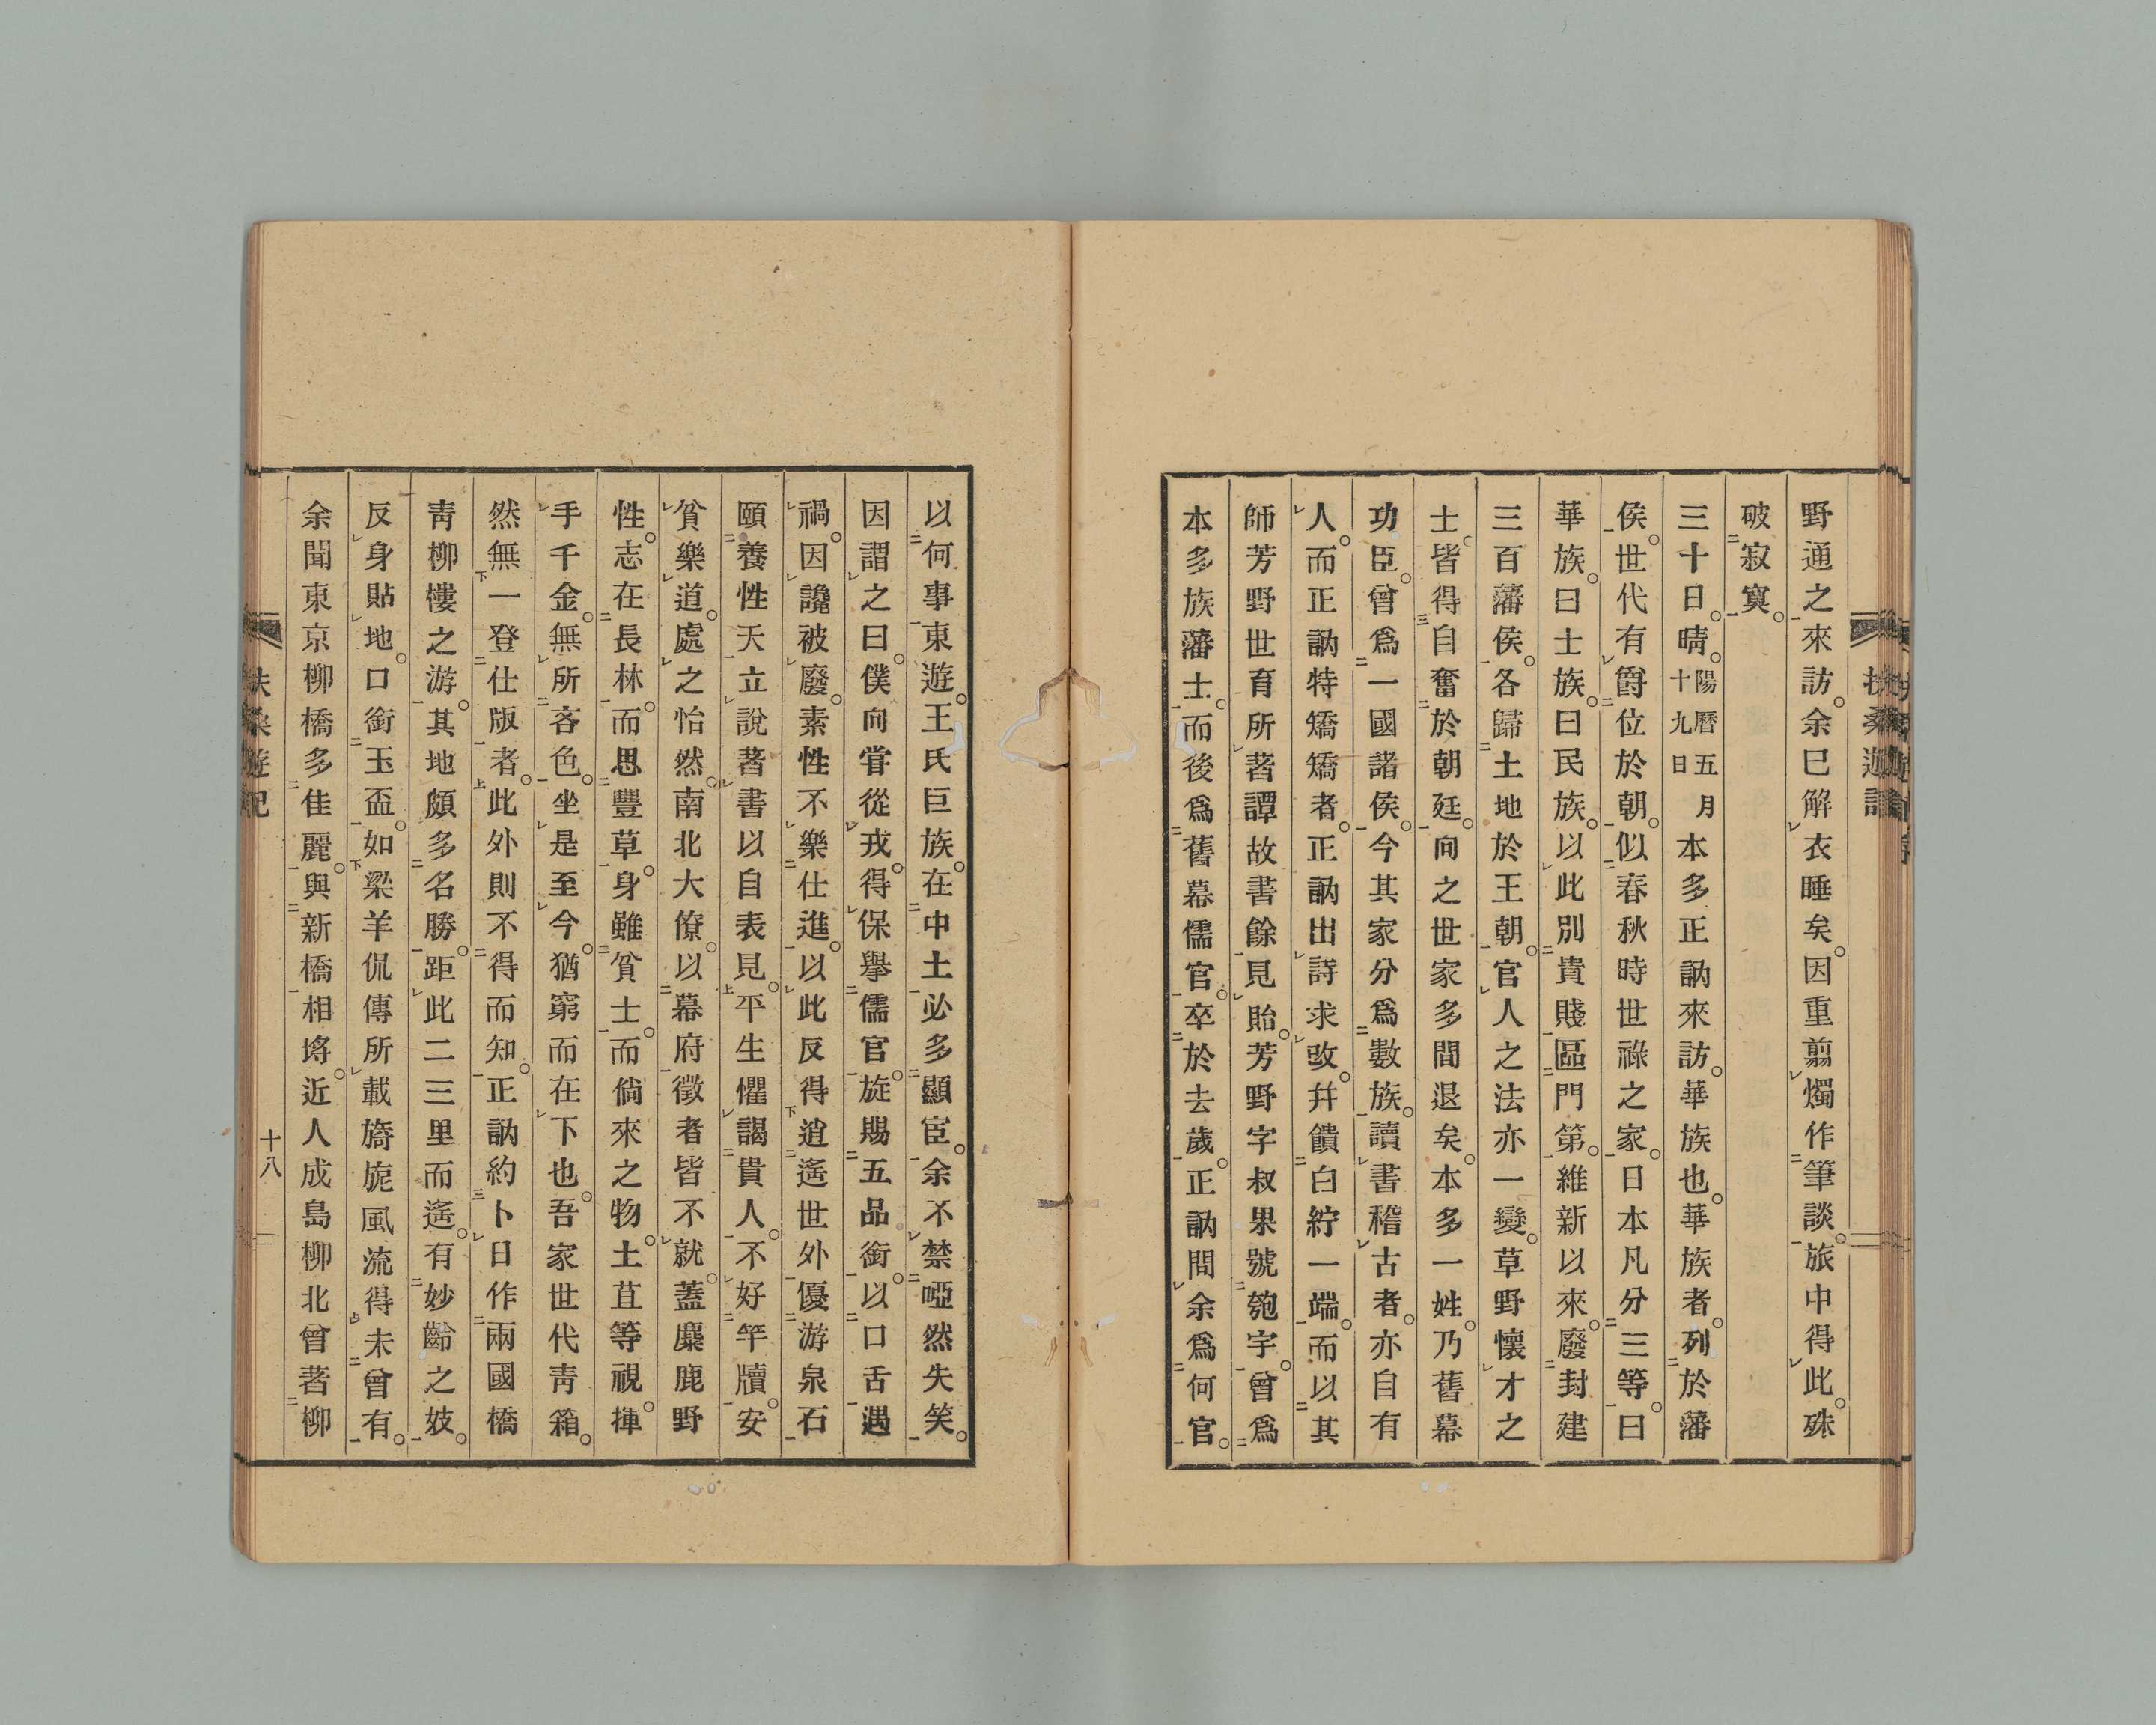 扶桑遊記
野通之來訪。余已解衣睡矣。因重翦燭作筆談。旅中得此。殊
破寂寞。
三十日。晴。陽曆五月十九日本多正訥來訪。華族也。華族者。列於藩
侯。世代有爵位於朝。似春秋時世祿之家。日本凡分三等。曰
華族。曰士族。曰民族。以此別貴賤區門第。維新以來。廢封建
三百藩侯。各歸土地於王朝。官人之法亦一變。草野懷才之
士。皆得自奮於朝廷。向之世家多閒退矣。本多一姓。乃舊幕
功臣。曾爲一國諸侯。今其家分爲數族。讀書稽古者。亦自有
人。而正訥特矯矯者。正訥出詩求改。幷饋白紵一端。而以其
師芳野世育所著譚故書餘見貽。芳野字叔果號匏宇。曾爲
本多族藩士。而後爲舊幕儒官。卒於去歲。正訥問余爲何官。
以何事東遊。王氏巨族。在中土必多顯宦。余不禁啞然失笑。
因謂之曰。僕向嘗從戎。得保擧儒官。旋賜五品銜。以口舌遇
禍。因讒被廢。素性不樂仕進。以此反得逍遙世外優游泉石
頤養性天立說著書以自表見。平生懼謁貴人。不好竿牘。安
貧樂道。處之怡然。南北大僚。以幕府徵者皆不就。蓋麋鹿野
性。志在長林。而思豐草。身雖貧士。而倘來之物。土苴等視。揮
手千金。無所吝色。坐是至今。猶窮而在下也。吾家世代靑箱。
然無一登仕版者。此外則不得而知。正訥約卜日作兩國橋
靑柳樓之游。其地頗多名勝。距此二三里而遙。有妙齡之妓。
反身貼地。口銜玉盃。如梁羊侃傳所載旖旎風流得未曾有。
余聞東京柳橋多佳麗。與新橋相埒。近人成島柳北曾著柳
扶桑遊記
十八